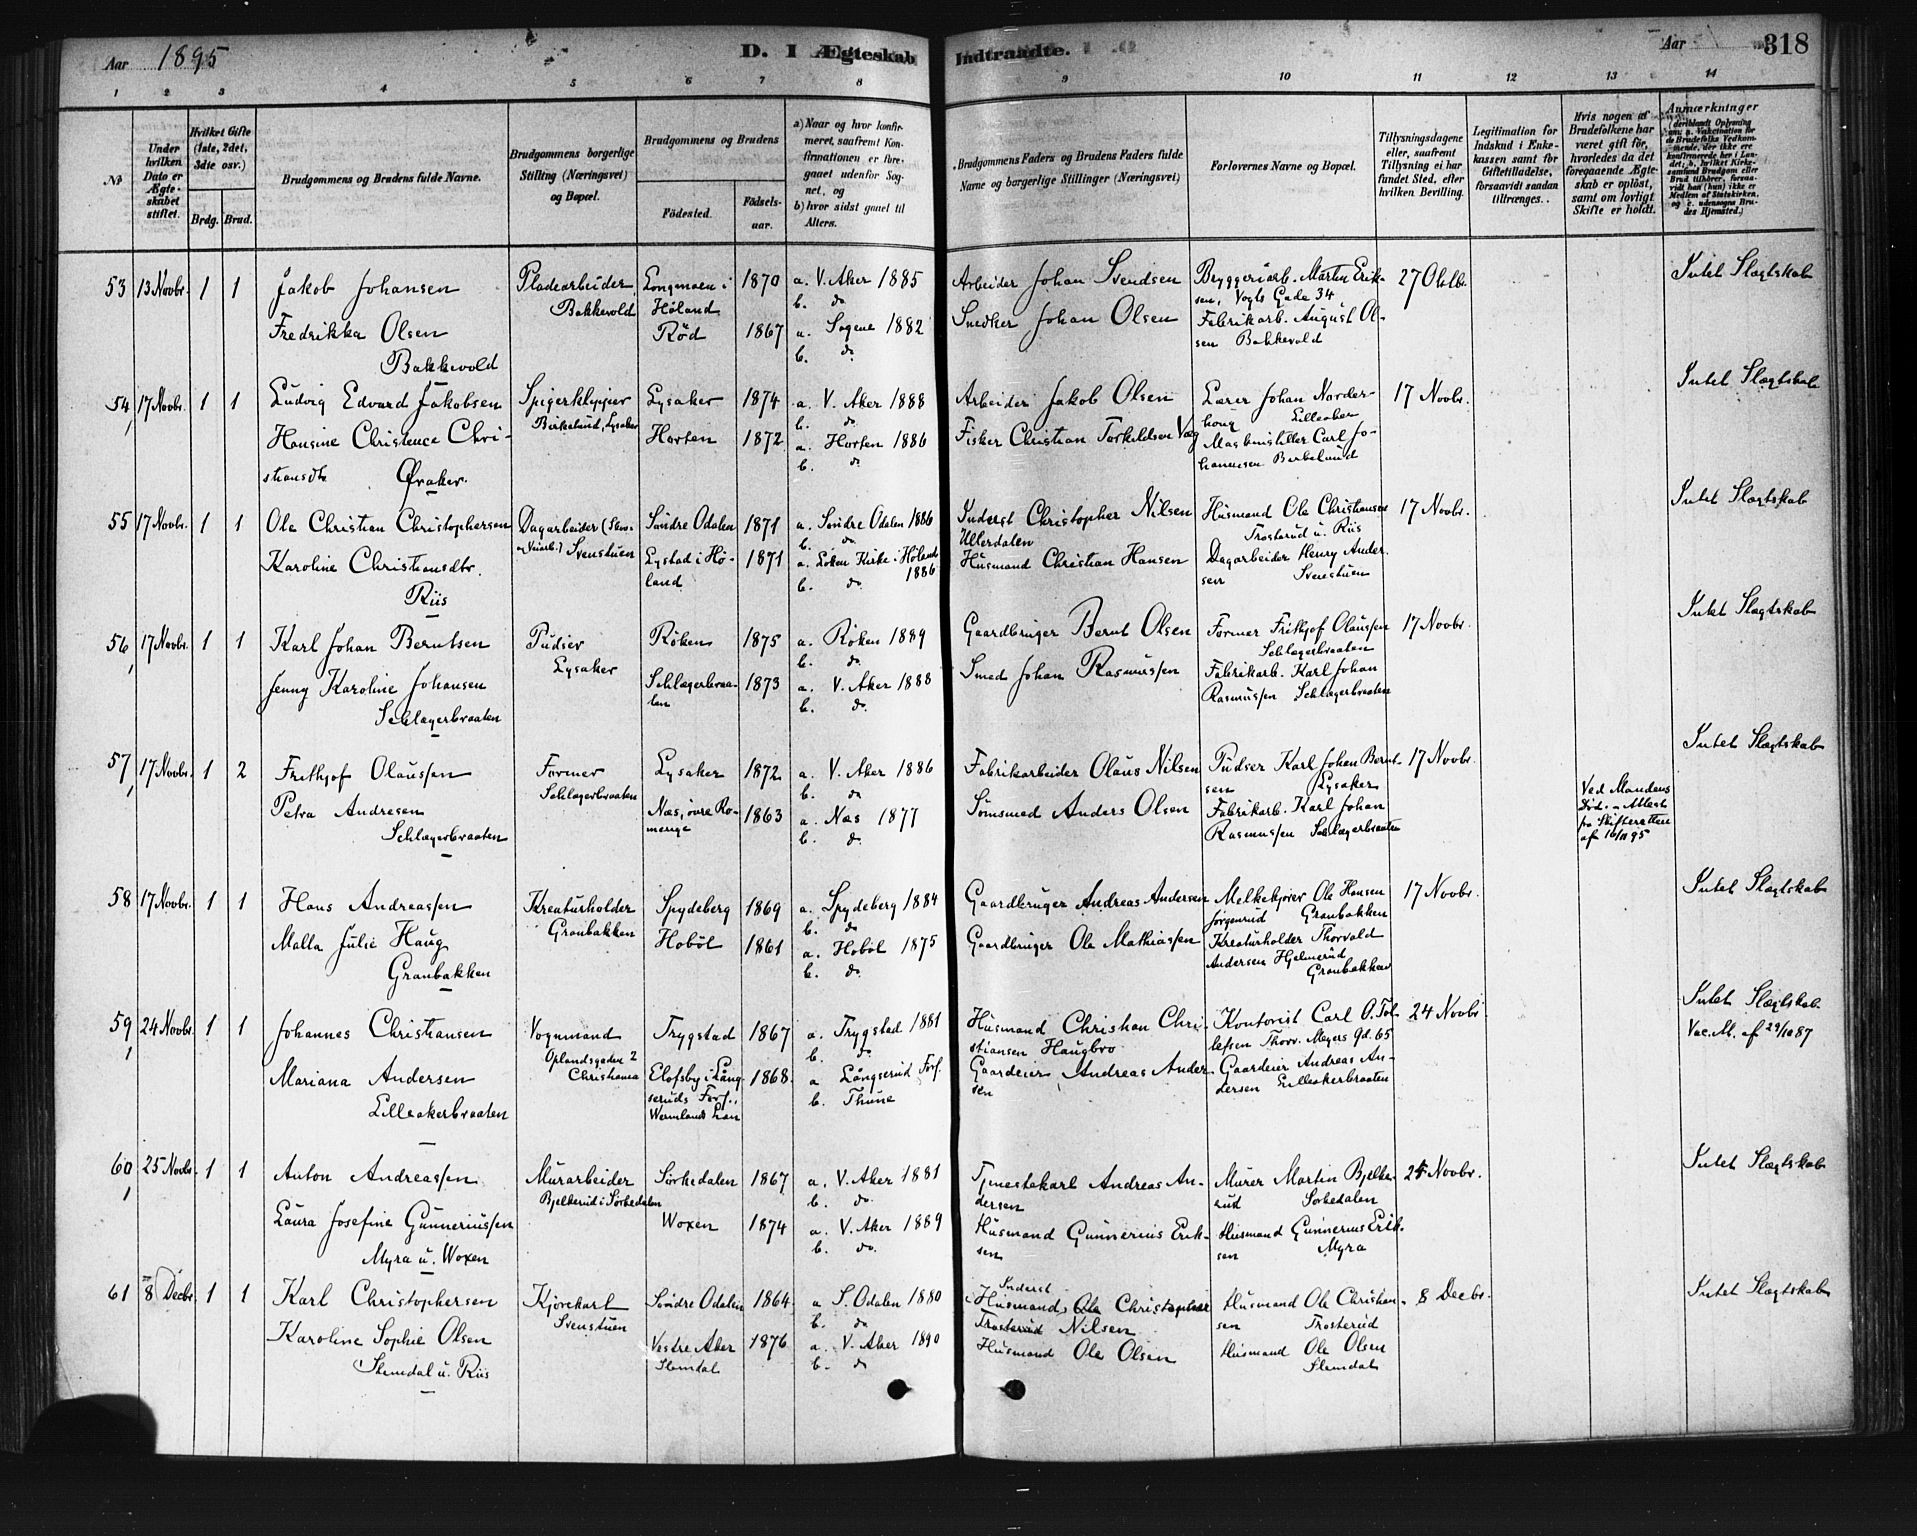 Aar 1895
D. I Ægteskab
Indtraadte.
Aar 318
1 2 3 4 5 6 7 8 9 10 11 12 13 14
No
Under hvilken Dato er Ægteskabet stiftet.
Hvilket Gifte (1ste, 2det, 3die osv.)
Brdg. Brud.
Brudgommens og Brudens fulde Navne.
Brudgommens borgerlige Stilling (Næringsvei) og Bopæl.
Brudgommens og Brudens
Fødested.
Fødselsaar.
a) Naar og hvor konfirmeret, saafremt Konfirmationen er foregaaet udenfor Sognet, og
b) hvor sidst gaaet til Alters.
Brudgommens Faders og Brudens Faders fulde Navne og borgerlige Stillinger (Næringsvei)
Forlovernes Navne og Bopæl.
Tillysningsdagene eller, saafremt Tillysning ei har fundet Sted, efter hvilken Bevilling.
Legitimation for Indskud i Enkekassen samt for Giftetilladelse, forsaavidt saadan tiltrænges.
Hvis nogen af Brudefolkene har været gift før, hvorledes da det foregaaende Ægteskab er opløst, samt om lovligt Skifte er holdt.
Anmærkninger
53 13 Novbr. 1 1 Jakob Johansen Pladearbeider Bakkevold Longmoen i Høland 1870 a. V. Aker 1885 b. do Arbeider Johan Svendsen Bryggeriarb. Martin Eriksen, Vogts Gade 34 27 Oktbr. Intet Slægtskab
Fredrikka Olsen Bakkevold Röd 1867 a. Sagene 1882 b. do. Snedker Johan Olsen Fabrikarb. August Olsen Bakkevold
54 17 Novbr. 1 1 Ludvig Edvard Jakobsen Spigerklipper Birkelund, Lysaker Lysaker 1874 a. V. Aker 1888 b. do. Arbeider Jakob Olsen Lærer Johan Norderhoug Lilleaker 17 Novbr. Intet Slægtskab
Hansine Christence Christiansdtr. Øraker Horten 1872 a. Horten 1886 b. do. Fisker Christian Torkildsen Maskinstiller Carl Johannesen Birkelund
55 17 Novbr. 1 1 Ole Christian Christophersen Dagarbeider Svenstuen Söndre Odalen 1871 a. Söndre Odalen 1886 b. do. Inderst Christopher Nilsen Ullerdalen Husmand Ole Christiansen Trosterud u. Riis 17 Novbr. Intet Slægtskab
Karoline Christiansdtr. Riis Lystad i Höland 1871 a. Löken Kirke i Höland 1886 b. do. Husmand Christian Hansen Dagarbeider Henry Andersen Svenstuen
56 17 Novbr. 1 1 Karl Johan Berntsen Pudser Lysaker Röken 1875 a. Röken 1889 b. do. Gaardbruger Bernt Olsen Former Frithjof Olaussen Schlagerbraaten 17 Novbr. Intet Slægtskab
Jenny Karoline Johansen Schlagerbraaten Schlagerbraaten 1873 a. V. Aker 1888 b. do. Smed Johan Rasmussen Fabrikarb. Karl Johan Rasmussen Schlagerbraaten
57 17 Novbr. 1 2 Frithjof Olaussen Former Schlagerbraaten Lysaker 1872 a. V. Aker 1886 b. do. Fabrikarbeider Olaus Nilsen Pudser Karl Johan Berntsen Lysaker 17 Novbr. Intet Slægtskab
Petra Andresen Schlagerbraaten Næs, övre Romerige 1863 a. Næs 1877 b. do. Sömsmed Anders Olsen Fabrikarb. Karl Johan Rasmussen Schlagerbraaten Ved Mandens Död. Attest fra Skifteretten af 16/11 95
58 17 Novbr. 1 1 Hans Andreassen Kreaturholder Granbakken Spydeberg 1869 a. Spydeberg 1884 b. do Gaardbruger Andreas Andersen Melkekjører Ole Hansen Jörgenrud Granbakken 17 Novbr. Intet Slægtskab
Malla Julie Haug Granbakken Hoböl 1861 a. Hoböl 1875 b. do. Gaardbruger Ole Mathiassen Kreaturholder Thorvald Andersen Hjelmerud Granbakken
59 24 Novbr. 1 1 Johannes Christiansen Vognmand Oplandsgaden 2 Christiania Trygstad 1867 a. Trygstad 1881 b. do Husmand Christian Christiansen Haugbro Kontorist Carl O. Tollefsen Thorv. Meyers Gd. 65 24 Novbr. Intet Slægtskab Vac. At. af 29/10 87
Mariana Andersen Lilleakerbraaten Elofsby i Långseruds Fors., Wermlands Län 1868 a Långserud Fors. b. Thune Gaardeier Andreas Andersen Gaardeier Andreas Andersen Lilleakerbraaten
60 25 Novbr. 1 1 Anton Andreassen Murarbeider Bjelkerud i Sörkedalen Sörkedalen 1867 a. V. Aker 1881 b. do. Tjenestekarl Andreas Andersen Murer Martin Bjelkerud Sorkedalen 24 Novbr. Intet Slægtskab
Laura Josefine Gunneriussen Myra u. Woxen Woxen 1874 a. V. Aker 1889 b. do. Husmand Gunnerius Eriksen Husmand Gunnerius Eriksen Myra
61 8 Decbr 1 1 Karl Christophersen Kjörekarl Svenstuen Söndre Odalen 1864 a S. Odalen 1880 b. do Inderst Christopher Nilsen Husmand Ole Christiansen Trosterud 8 Decbr. Intet Slægtskab
Karoline Sophie Olsen Slemdal u. Riis Vestre Aker Slemdal 1876 a. V. Aker 1890 b. do Husmand Ole Olsen Husmand Ole Olsen Slemdal